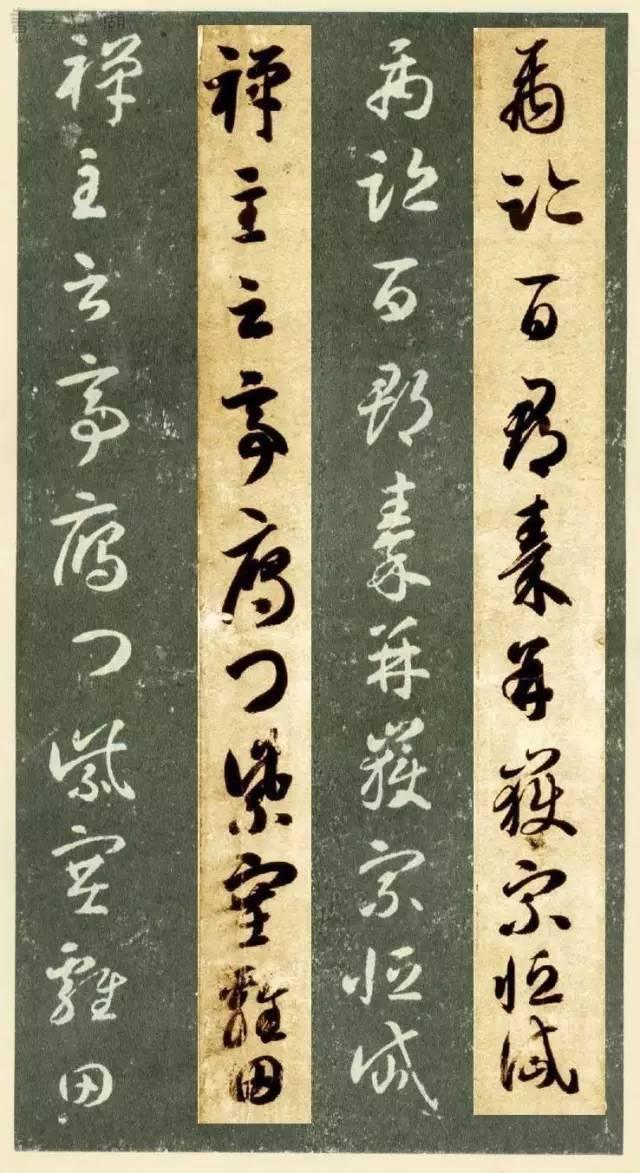 禹跡百郡秦并嶽宗恒岱
禹跡百郡秦并嶽宗恒岱
禪主云亭鴈門紫塞雞田
禪主云亭鴈門紫塞雞田
書法江湖